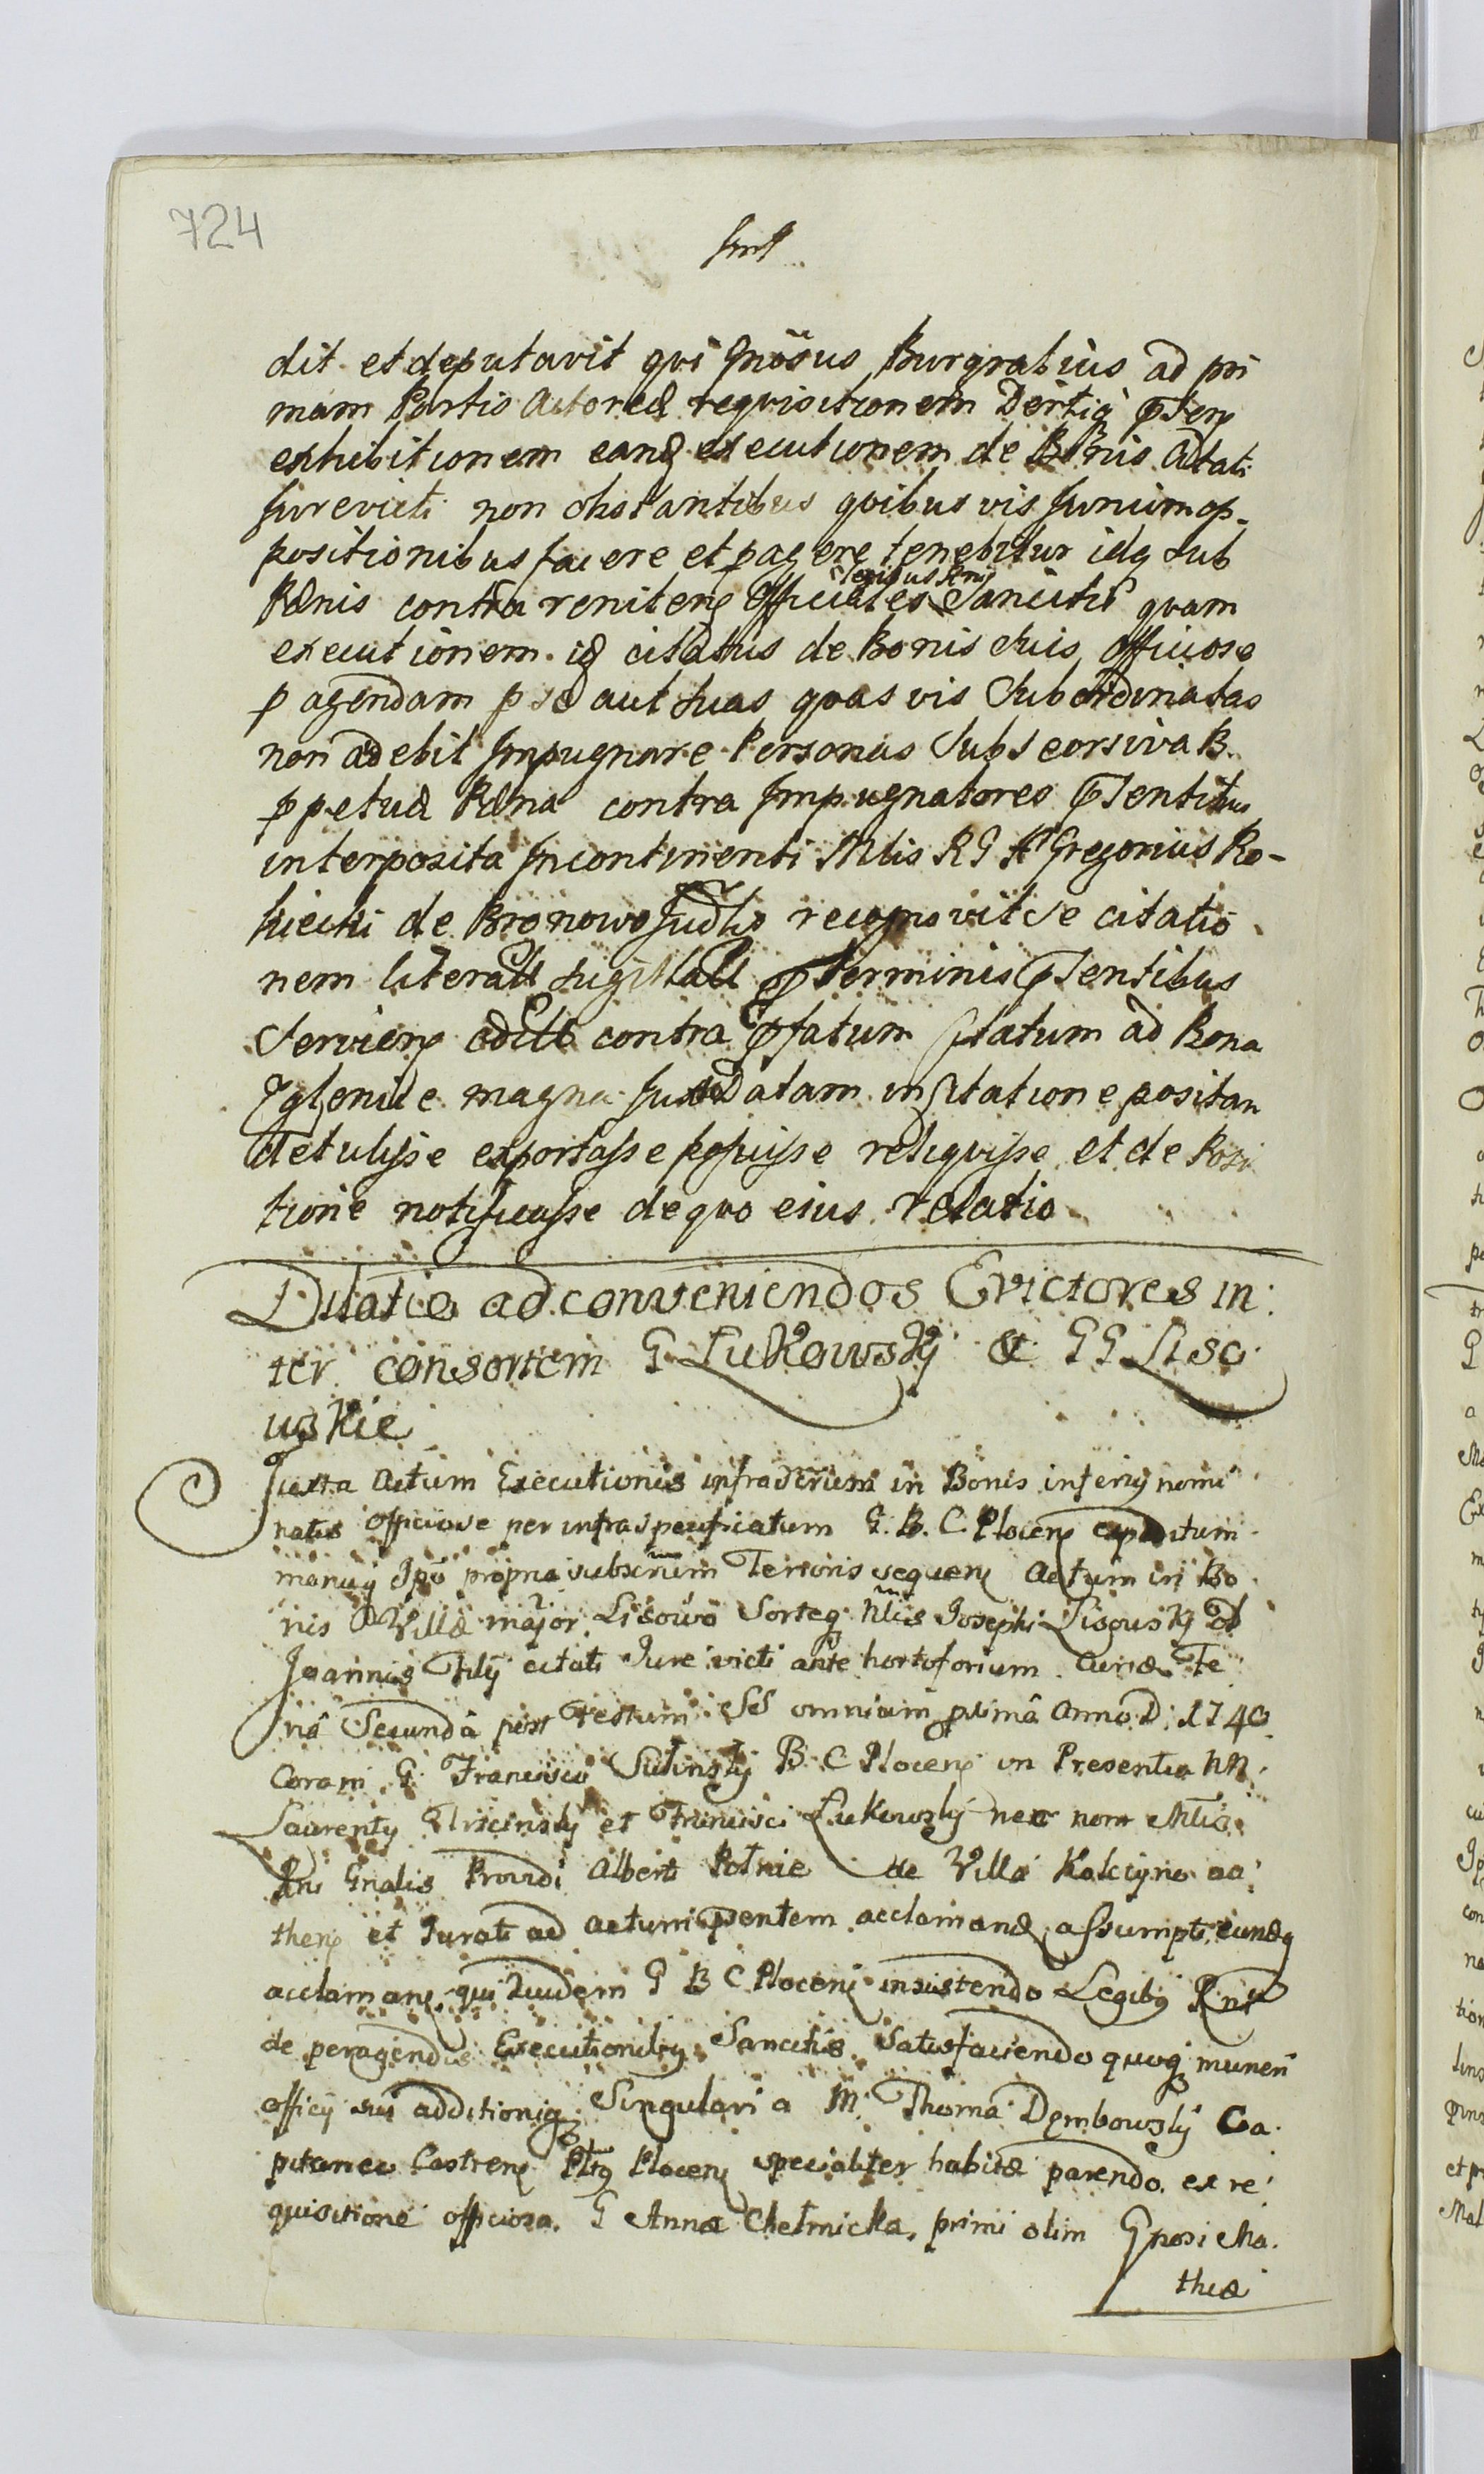 724
dit et deputavit qvi Gnōsus Burgrabius ad pri
mam Partis Actoreæ reqvisitionem Dertiq
exhibitionem eanq executionem de BBnis Citati
Jurevicti non obstantibus qvibus vis Junium op-
positionibus facere et pagere tenebitur idq sub
Pænis contra renitens Officiales legibus Rni Sancitis qvam
executionem iq citatus de Bonis suis officiose
p agendam p se aut suas qvas vis Subordinatas
non adebit Impugnare Personas Sub seorsiva B.
ppetua Pæna contra Impugnatores psentibus
interposita Incontinenti Mlis RG Gregorius Ro-
kicki de Bronowo recognovit se citatio
nem literall sigillall terminis psentibus
Serviens contra pfatum Citatum ad Bona
magna Juxta datam in Citatione positam
detulisse exportasse posuisse reliqvisse et de Posi
tione notificasse de qvo eius relatio
Dilatio ad conveniendos Evictores in:
ter consortem G Lukowskÿ & GG Liso
wskie
Juxta Actum Executionis infrascrūm in Bonis inferiq nomi
natis officiose per infraspecificatum G. B. C. Plocens expeditum
manuq Ipō propria subscrūm Tenoris sequens Actum in Bo
nis Villæ major Lisowo Sorteq Nlis Josephi Lisowskÿ et
Joannis Filÿ citati Jure victi ante hortoforium Curiæ Fe
riâ Secundâ post Festum SS omnium primâ Anno D. 1740
Coram G Francisco Sulinskÿ B. C Plocens in Presentia NN
Laurentÿ et Francisci Lukowskÿ nec non Mlis
Rni Gnalis Providi Alberti Potnie de Villa Kolczyno aa
thens et Jurati ad Actum psentem acclamand assumpti eundq
acclamans qui quidem G B C Plocens insistendo Legibq Rni
de peragendis Executionibq Sancitis Satisfaciendo quoq muneri
officÿ sui additioniq Singulari a M. Thoma Dembowskÿ Ca
pitaneo Castrens Pltq Plocens specialiter habitæ parendo ex re
quisitione officiosa G Anna Chełmicka, primi olim Gnosi Ma
thiæ